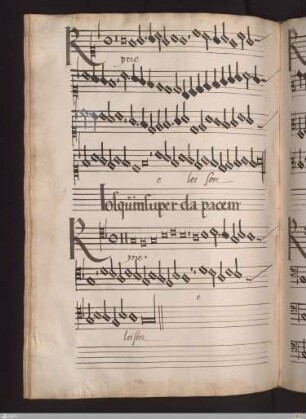 Kyrie
e lei son
Iosquin super da pacem
Kyrie
e
leison